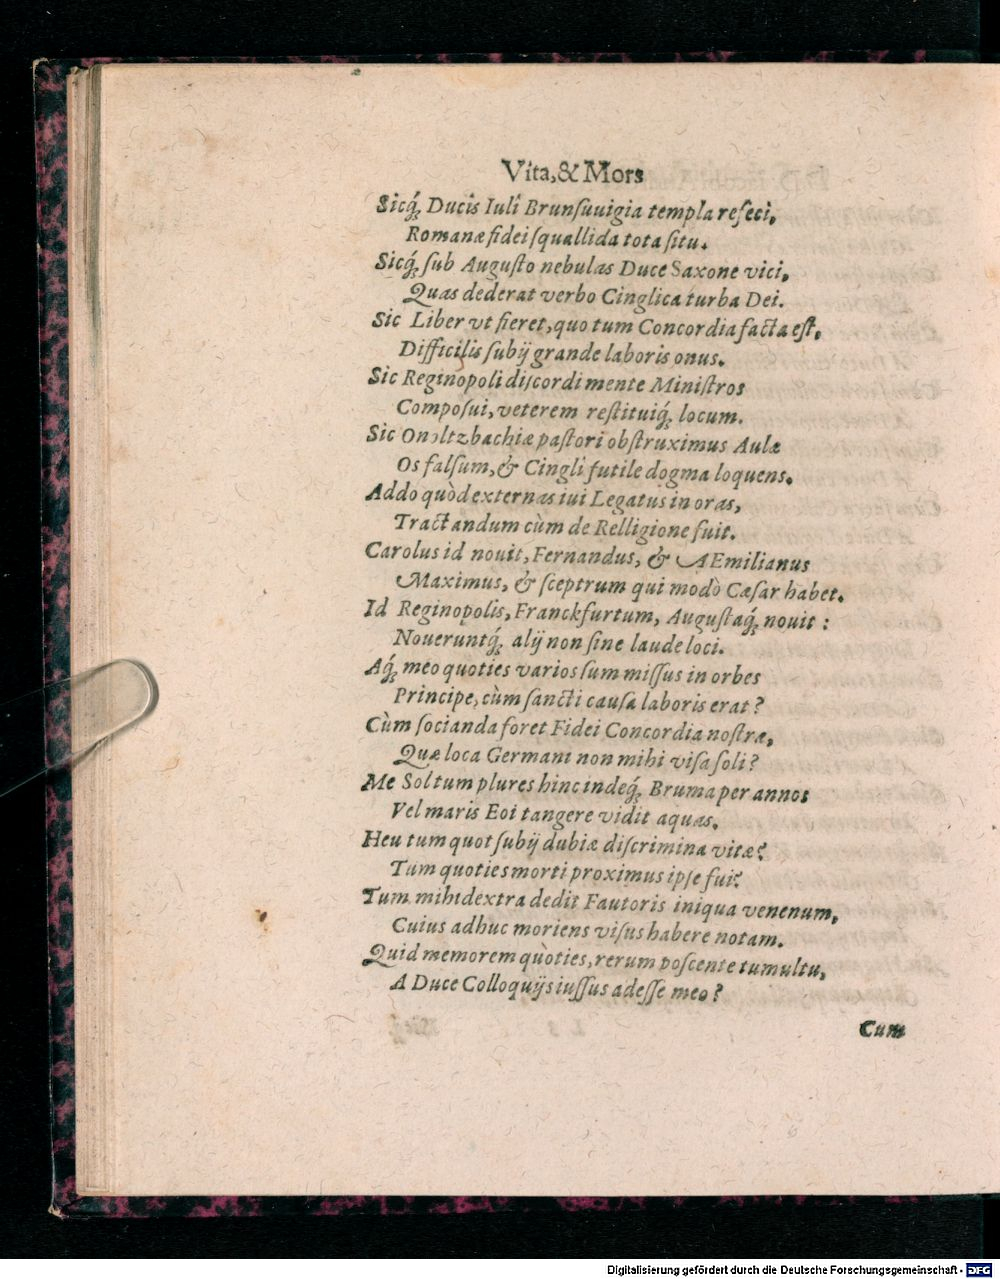 Vita, & Mors
Sicq́; Ducis Iulî Brunſuuigia templa refeci,
Romanæ fidei ſquallida tota ſitu.
Sicq́; ſub Auguſto nebulas Duce Saxone vici,
Quas dederat verbo Cinglica turba Dei.
Sic Liber vt fieret, quo tum Concordia facta eſt,
Difficilis ſubij grande laboris onus.
Sic Reginopoli diſcordi mente Miniſtros
Compoſui, veterem reſtituiq́; locum.
Sic Onoltzbachiæ paſtori obſtruximus Aulæ
Os falſum, & Cingli futile dogma loquens.
Addo quòd externas iui Legatus in oras,
Tractandum cùm de Relligione fuit.
Carolus id nouit, Fernandus, & AEmilianus
Maximus, & ſceptrum qui modò Cæſar habet.
Id Reginopolis, Franckfurtum, Auguſtaq́; nouit:
Noueruntq́; alij non ſine laude loci.
Aq́; meo quoties varios ſum miſſus in orbes
Principe, cùm ſancti cauſa laboris erat?
Cùm ſocianda foret Fidei Concordia noſtræ,
Quæ loca Germani non mihi viſa ſoli?
Me Sol tum plures hinc indeq́; Bruma per annos
Vel maris Eoi tangere vidit aquas.
Heu tum quot ſubij dubiæ diſcrimina vitæ?
Tum quoties morti proximus ipſe fui?
Tum mihi dextra dedit Fautoris iniqua venenum,
Cuius adhuc moriens viſus habere notam.
Quid memorem quòties, rerum poſcente tumultu,
A Duce Colloquijs iuſſus adeſſe meo?
Cum
Digitalisierung gefördert durch die Deutsche Forschungsgemeinschaft - DFG